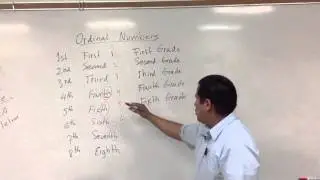 Ordinal Numbers
1st First First Grade
2nd Second Second Grade
3rd Third Third Grade
4th Fourth Fourth Grade
5th Fifth Fifth Grade
6th Sixth
7th Seventh
8th Eighth